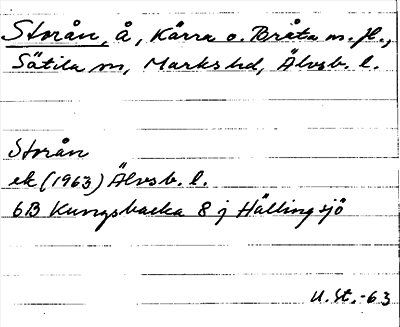 Storån, å, Kårra o. Bråta m. fl.,
Sätila sn, Marks hd, Älvsb. l.
Storån
ek (1963) Älvsb. l.
6B Kungsbacka 8 j Hällingsjö
U. St. -63